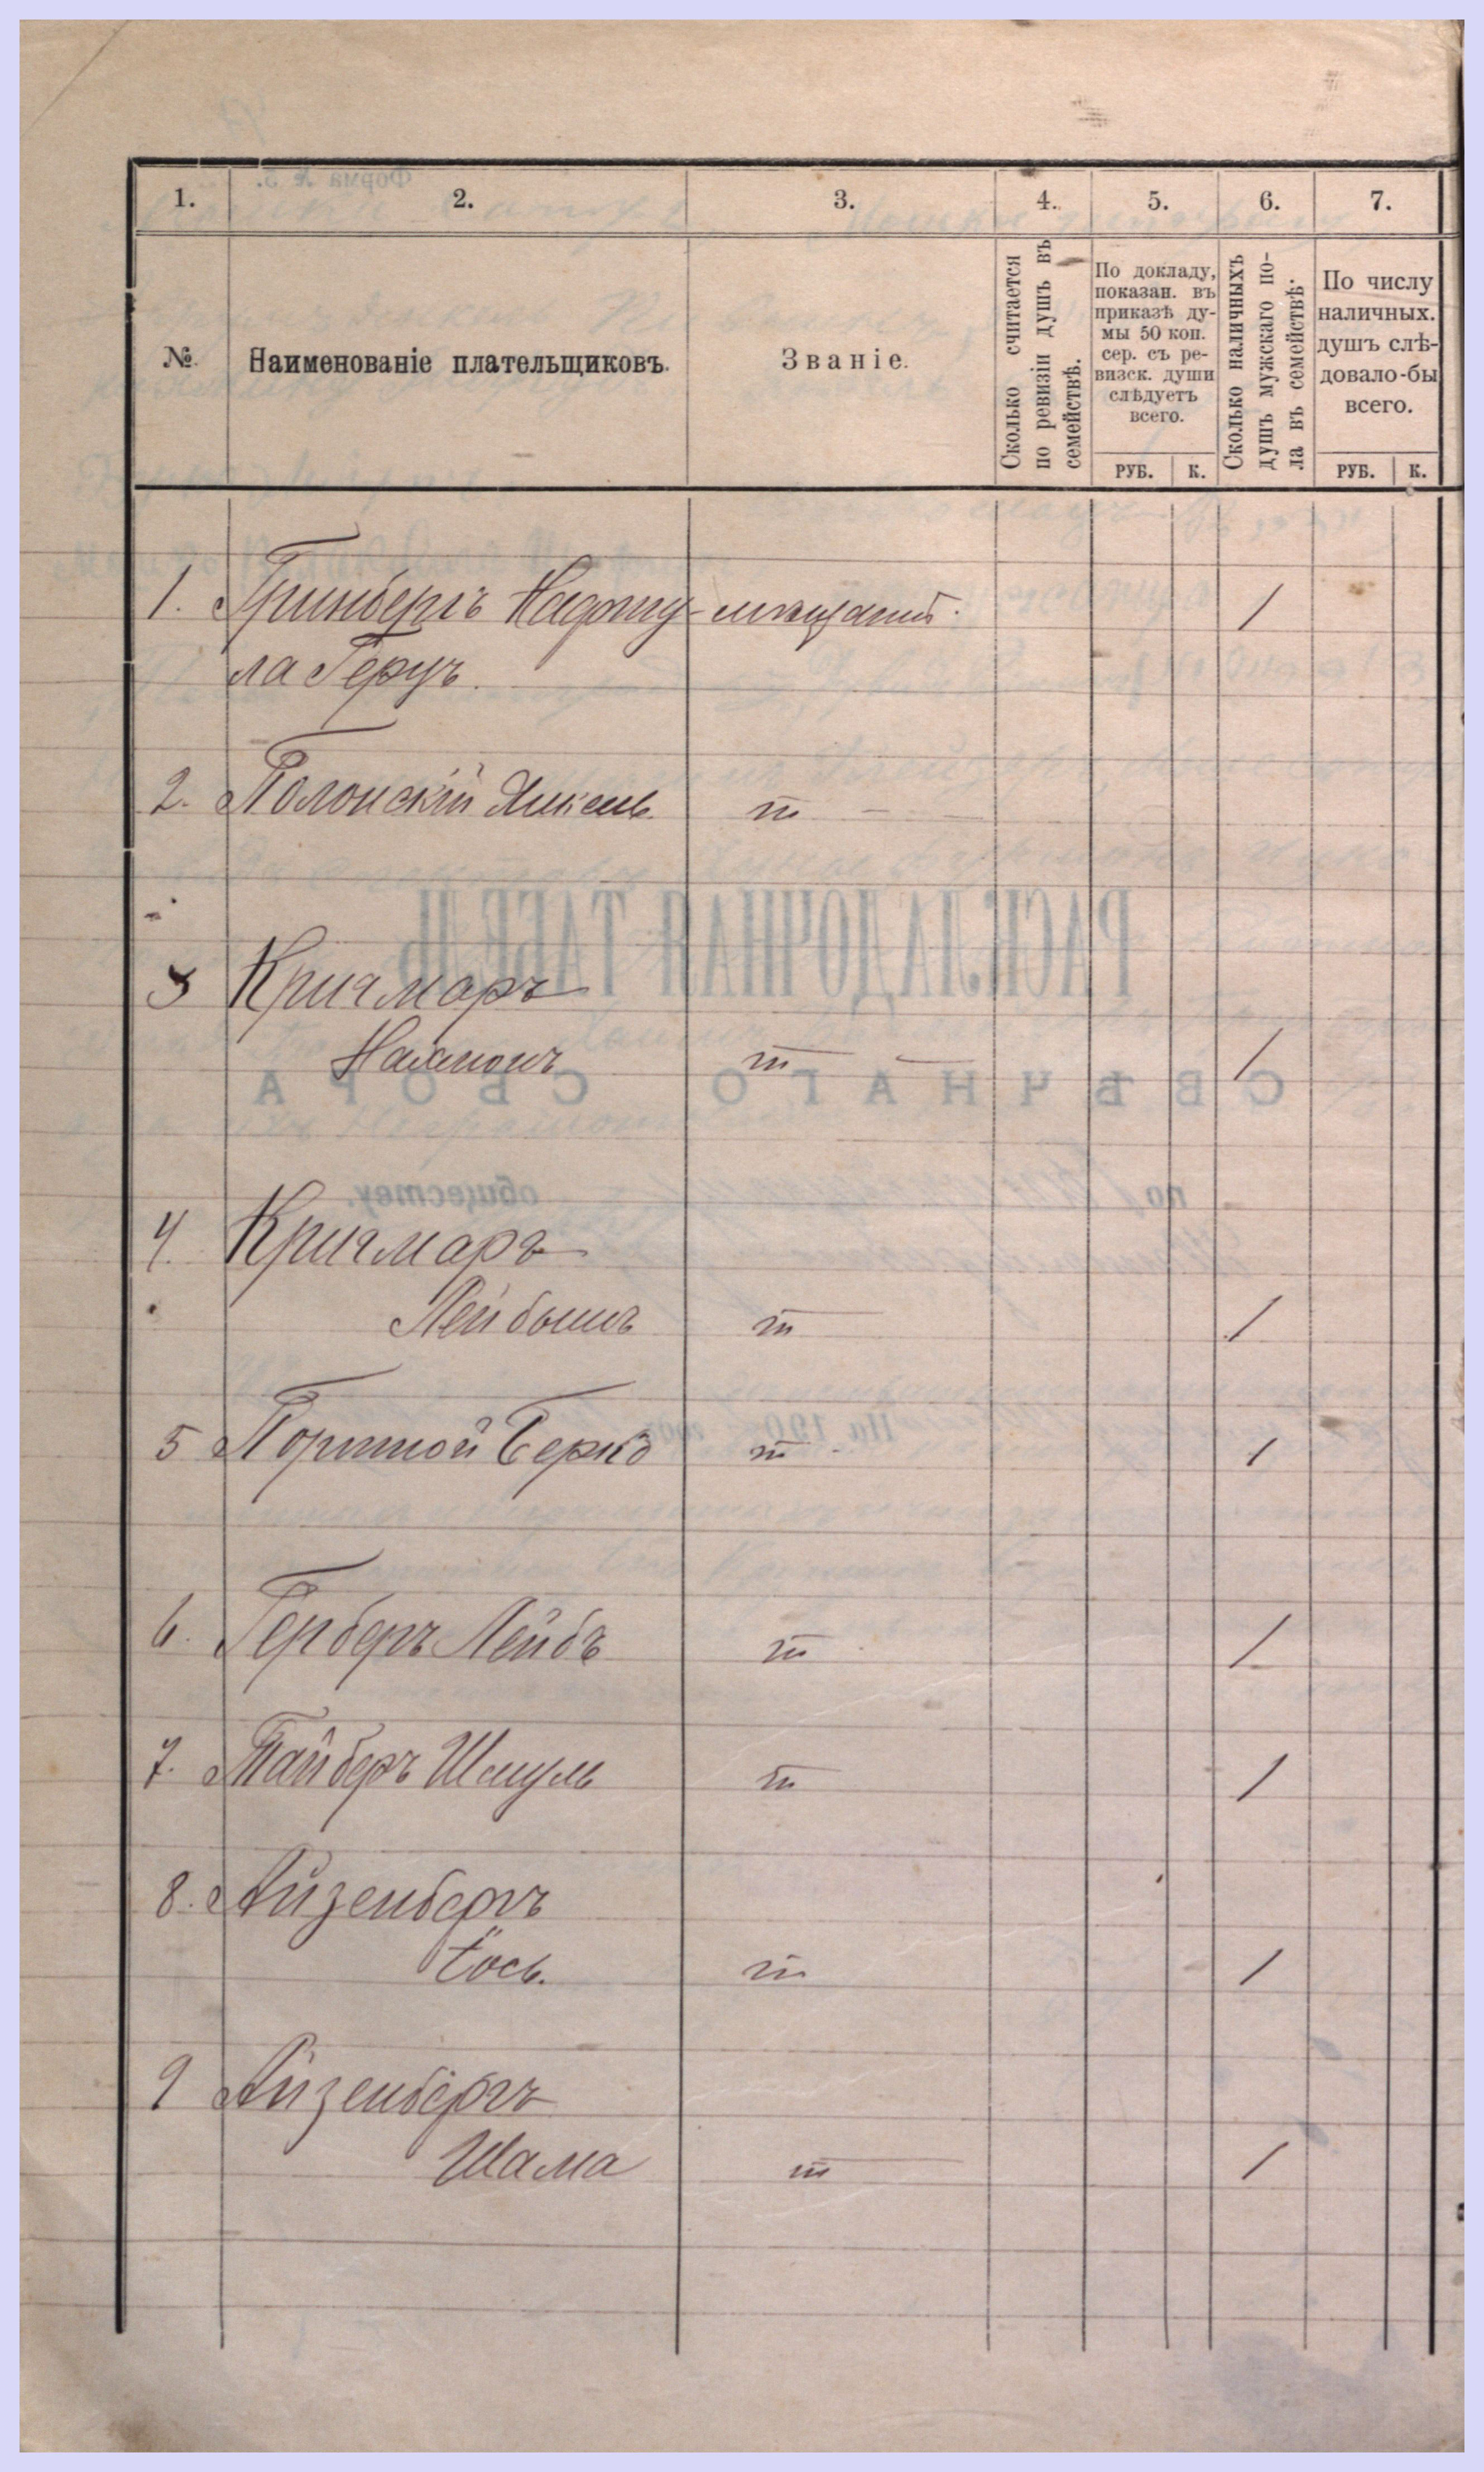 1. 2. 3. 4. 5. 6. 7.
№. Наименованіе плательщиковъ. Званіе. Сколько считается по ревизіи душъ въ семействѣ. По докладу, показан. въ приказѣ ду-
мы 50 коп.
сер. съ ре-
визск. души
слѣдуетъ
всего.
РУБ. К.
Сколько наличныхъ
душъ мужскаго по-
ла въ семействѣ.
По числу
наличных.
душъ слѣ-
довало-бы
всего.
РУБ. К.
1. Гринбергъ Нафту- мѣщанинъ. /
ла Герцъ.
2. Полонскій т —
3 Кричмаръ
Нахманъ т — /
4. Кричмаръ
Лейбышъ т /
5 Портной Берко т /
6. Герберъ Лейбъ т /
7. Тайберъ Шмуль т /
8. Айзенбергъ
Іось. т /
9 Айзенбергъ
Шама т /